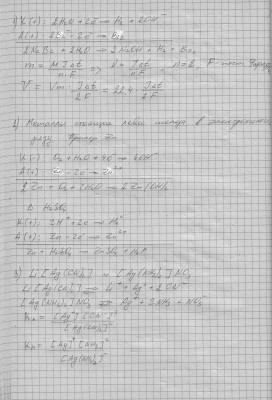 1) K(+): 2H₂O + 2ē → H₂ + 2OH⁻
A(+): 2Br⁻ - 2ē → Br₂
2NaBr + 2H₂O → 2NaOH + H₂ + Br₂
m = M·I·t / n·F => n = 2, F
V = Vm · I·t / 2F = 22.4 · I·t / 2F
2) Металл левее в
Zn
K(-): O₂ + H₂O + 4ē → 4OH⁻
A(+): Zn - 2ē → Zn²⁺
2Zn + O₂ + 2H₂O → 2Zn(OH)₂
В H₂SO₄
K(+): 2H⁺ + 2ē → H₂⁰
A(+): Zn - 2ē → Zn²⁺
Zn + H₂SO₄ → ZnSO₄ + H₂↑
3) Li[Ag(CN)₂] и [Ag(NH₃)₂]NO₃
Li[Ag(CN)₂] ⇌ Li⁺ + Ag⁺ + 2CN⁻
[Ag(NH₃)₂]NO₃ ⇌ Ag⁺ + 2NH₃ + NO₃⁻
Kн = [Ag⁺][CN⁻]² / [Ag(CN)₂]⁻
Kн = [Ag]⁺[NH₃]² / [Ag(NH₃)₂]⁺